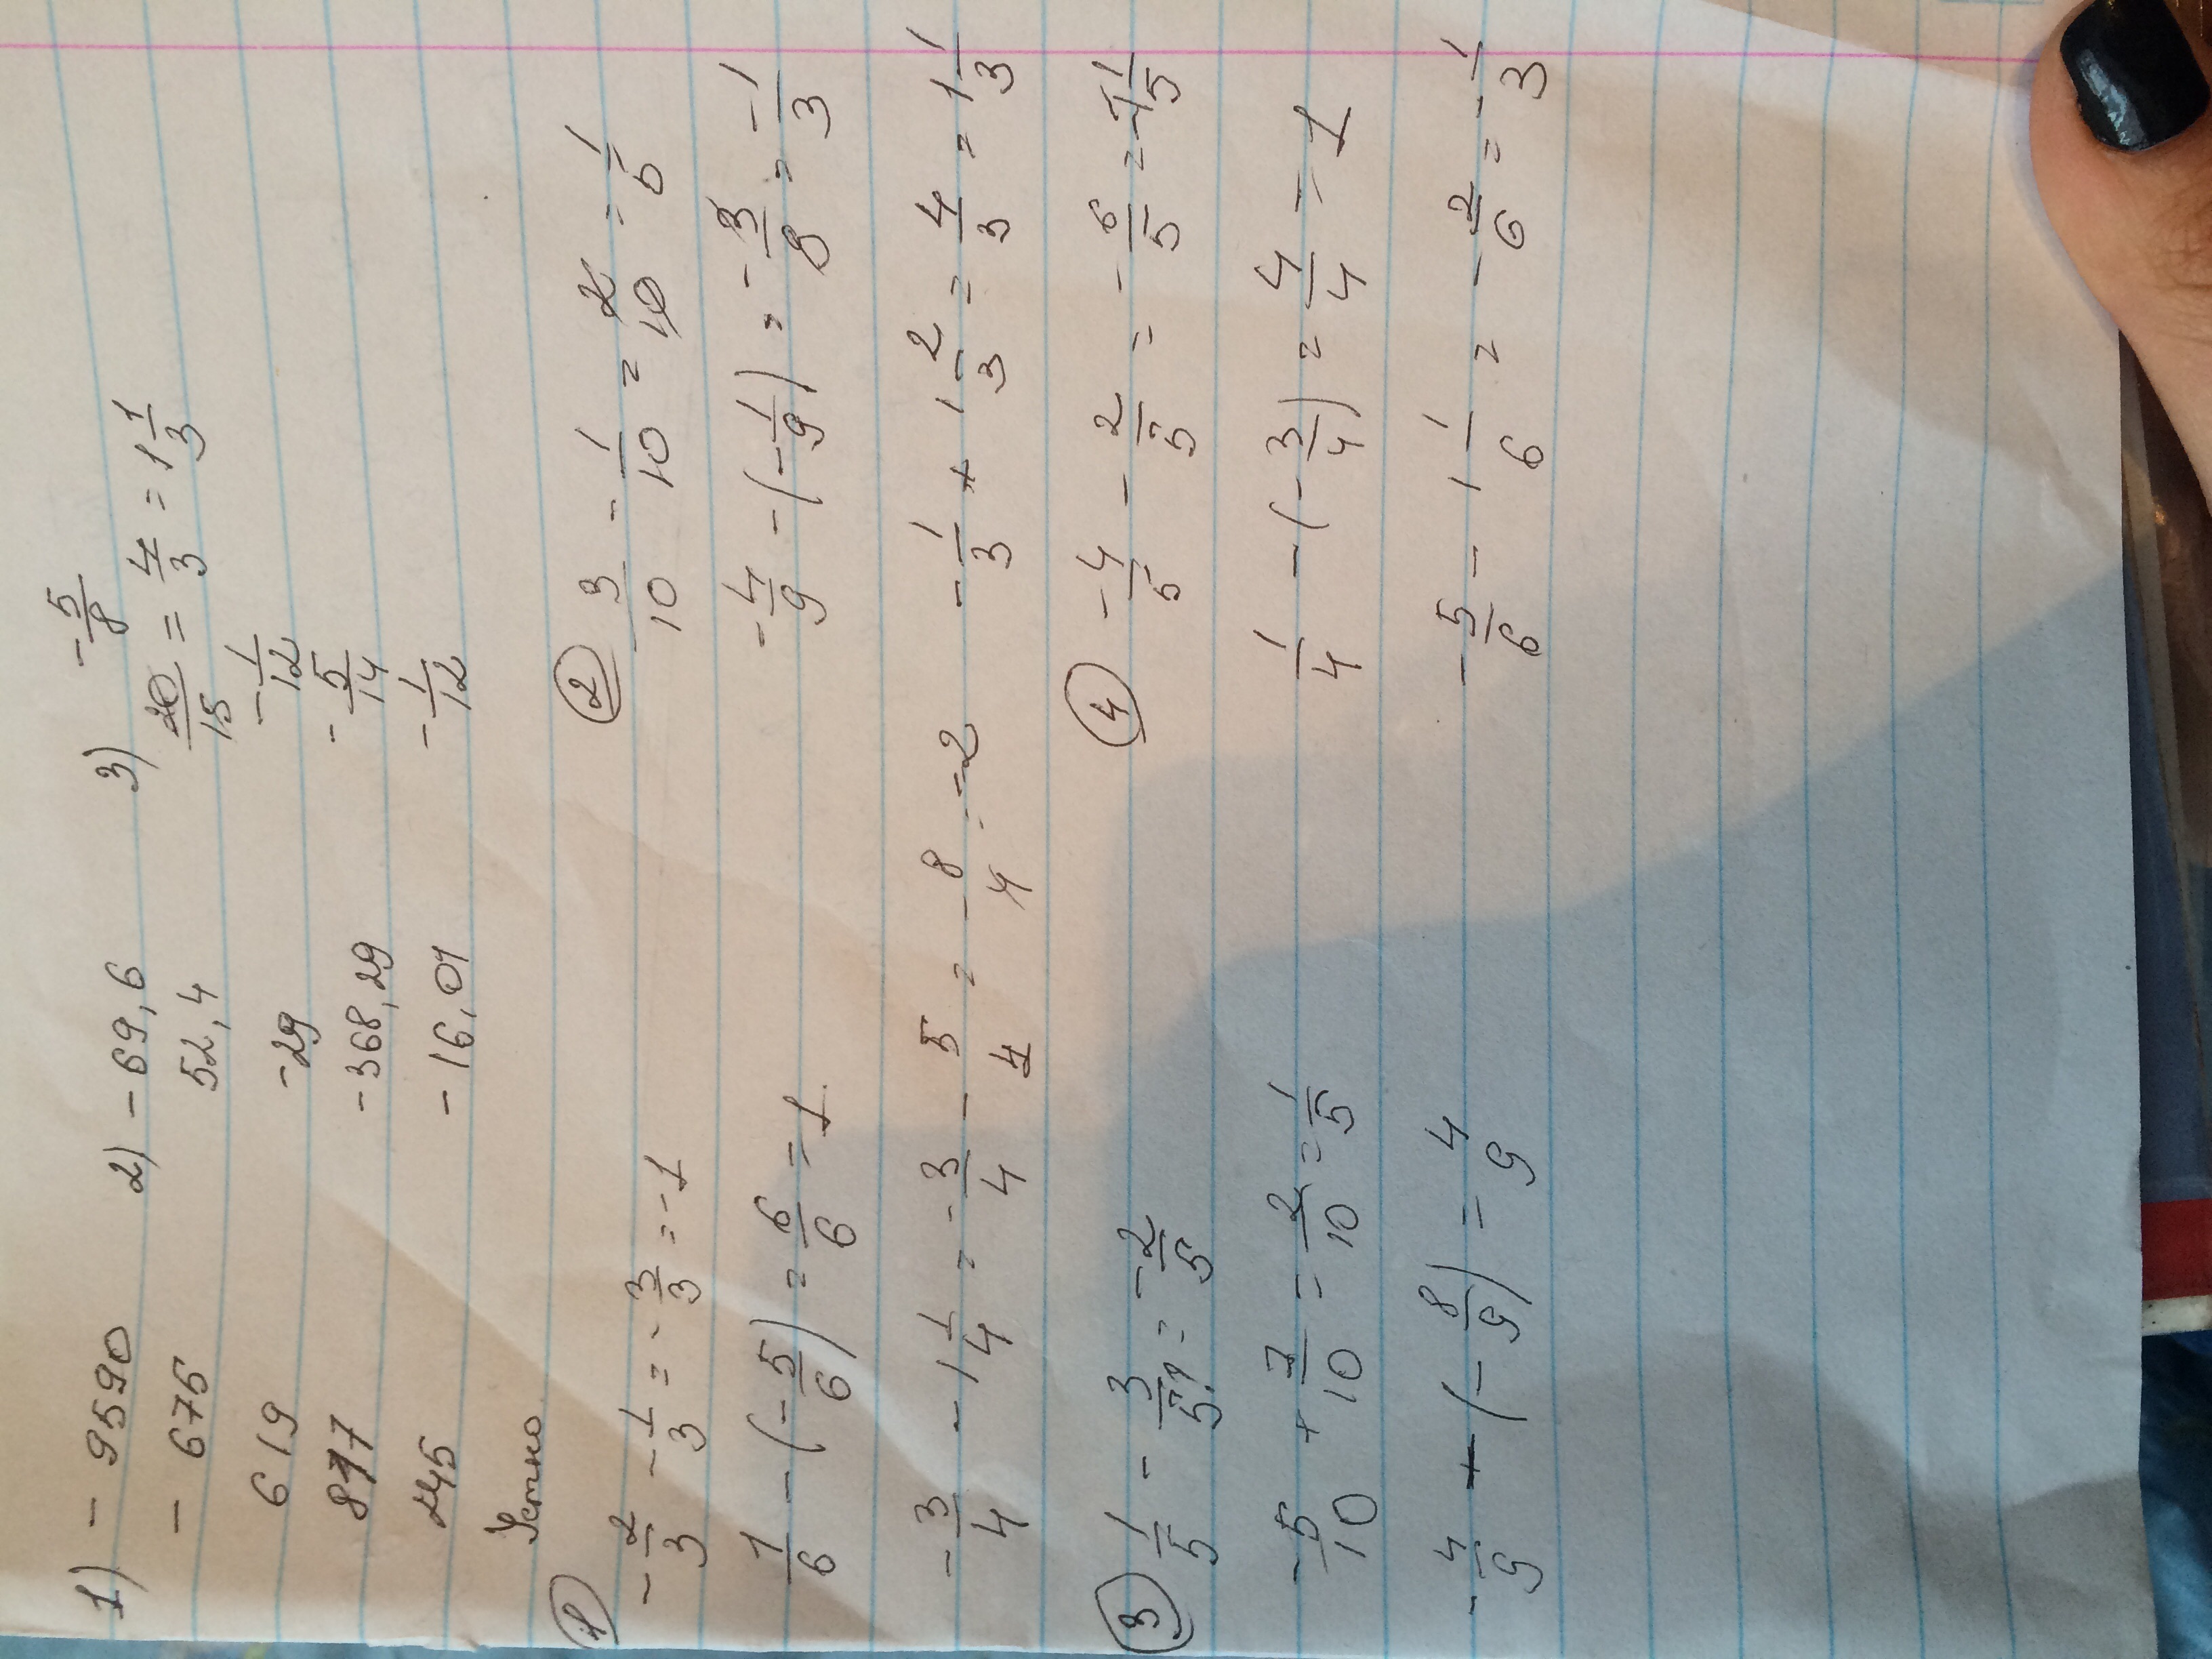 1) - 9590 2) - 69,6 3) - 5/8
- 675 52,4 20/15 = 4/3 = 1 1/3
619 - 29 - 1/12
877 - 368,29 - 5/14
245 - 16,01 - 1/12
Устно
1 - 2/3 - 1/3 = - 3/3 = - 1
1/6 - (- 5/6) = 6/6 = 1
- 3/4 - 1 1/4 = - 3/4 - 5/4 = - 8/4 = - 2
2 3/10 - 1/10 = 2/10 = 1/5
- 4/9 - (- 1/9) = - 3/9 = - 1/3
- 1/3 + 1 2/3 = 4/3 = 1 1/3
3 1/5 - 3/5 = - 2/5
- 5/10 + 7/10 = 2/10 = 1/5
- 4/9 + (- 8/9) = 4/9
4 - 4/5 - 2/5 = - 6/5 = - 1 1/5
1/4 - (- 3/4) = 4/4 = 1
- 5/6 - 1 1/6 = - 2/6 = - 1/3